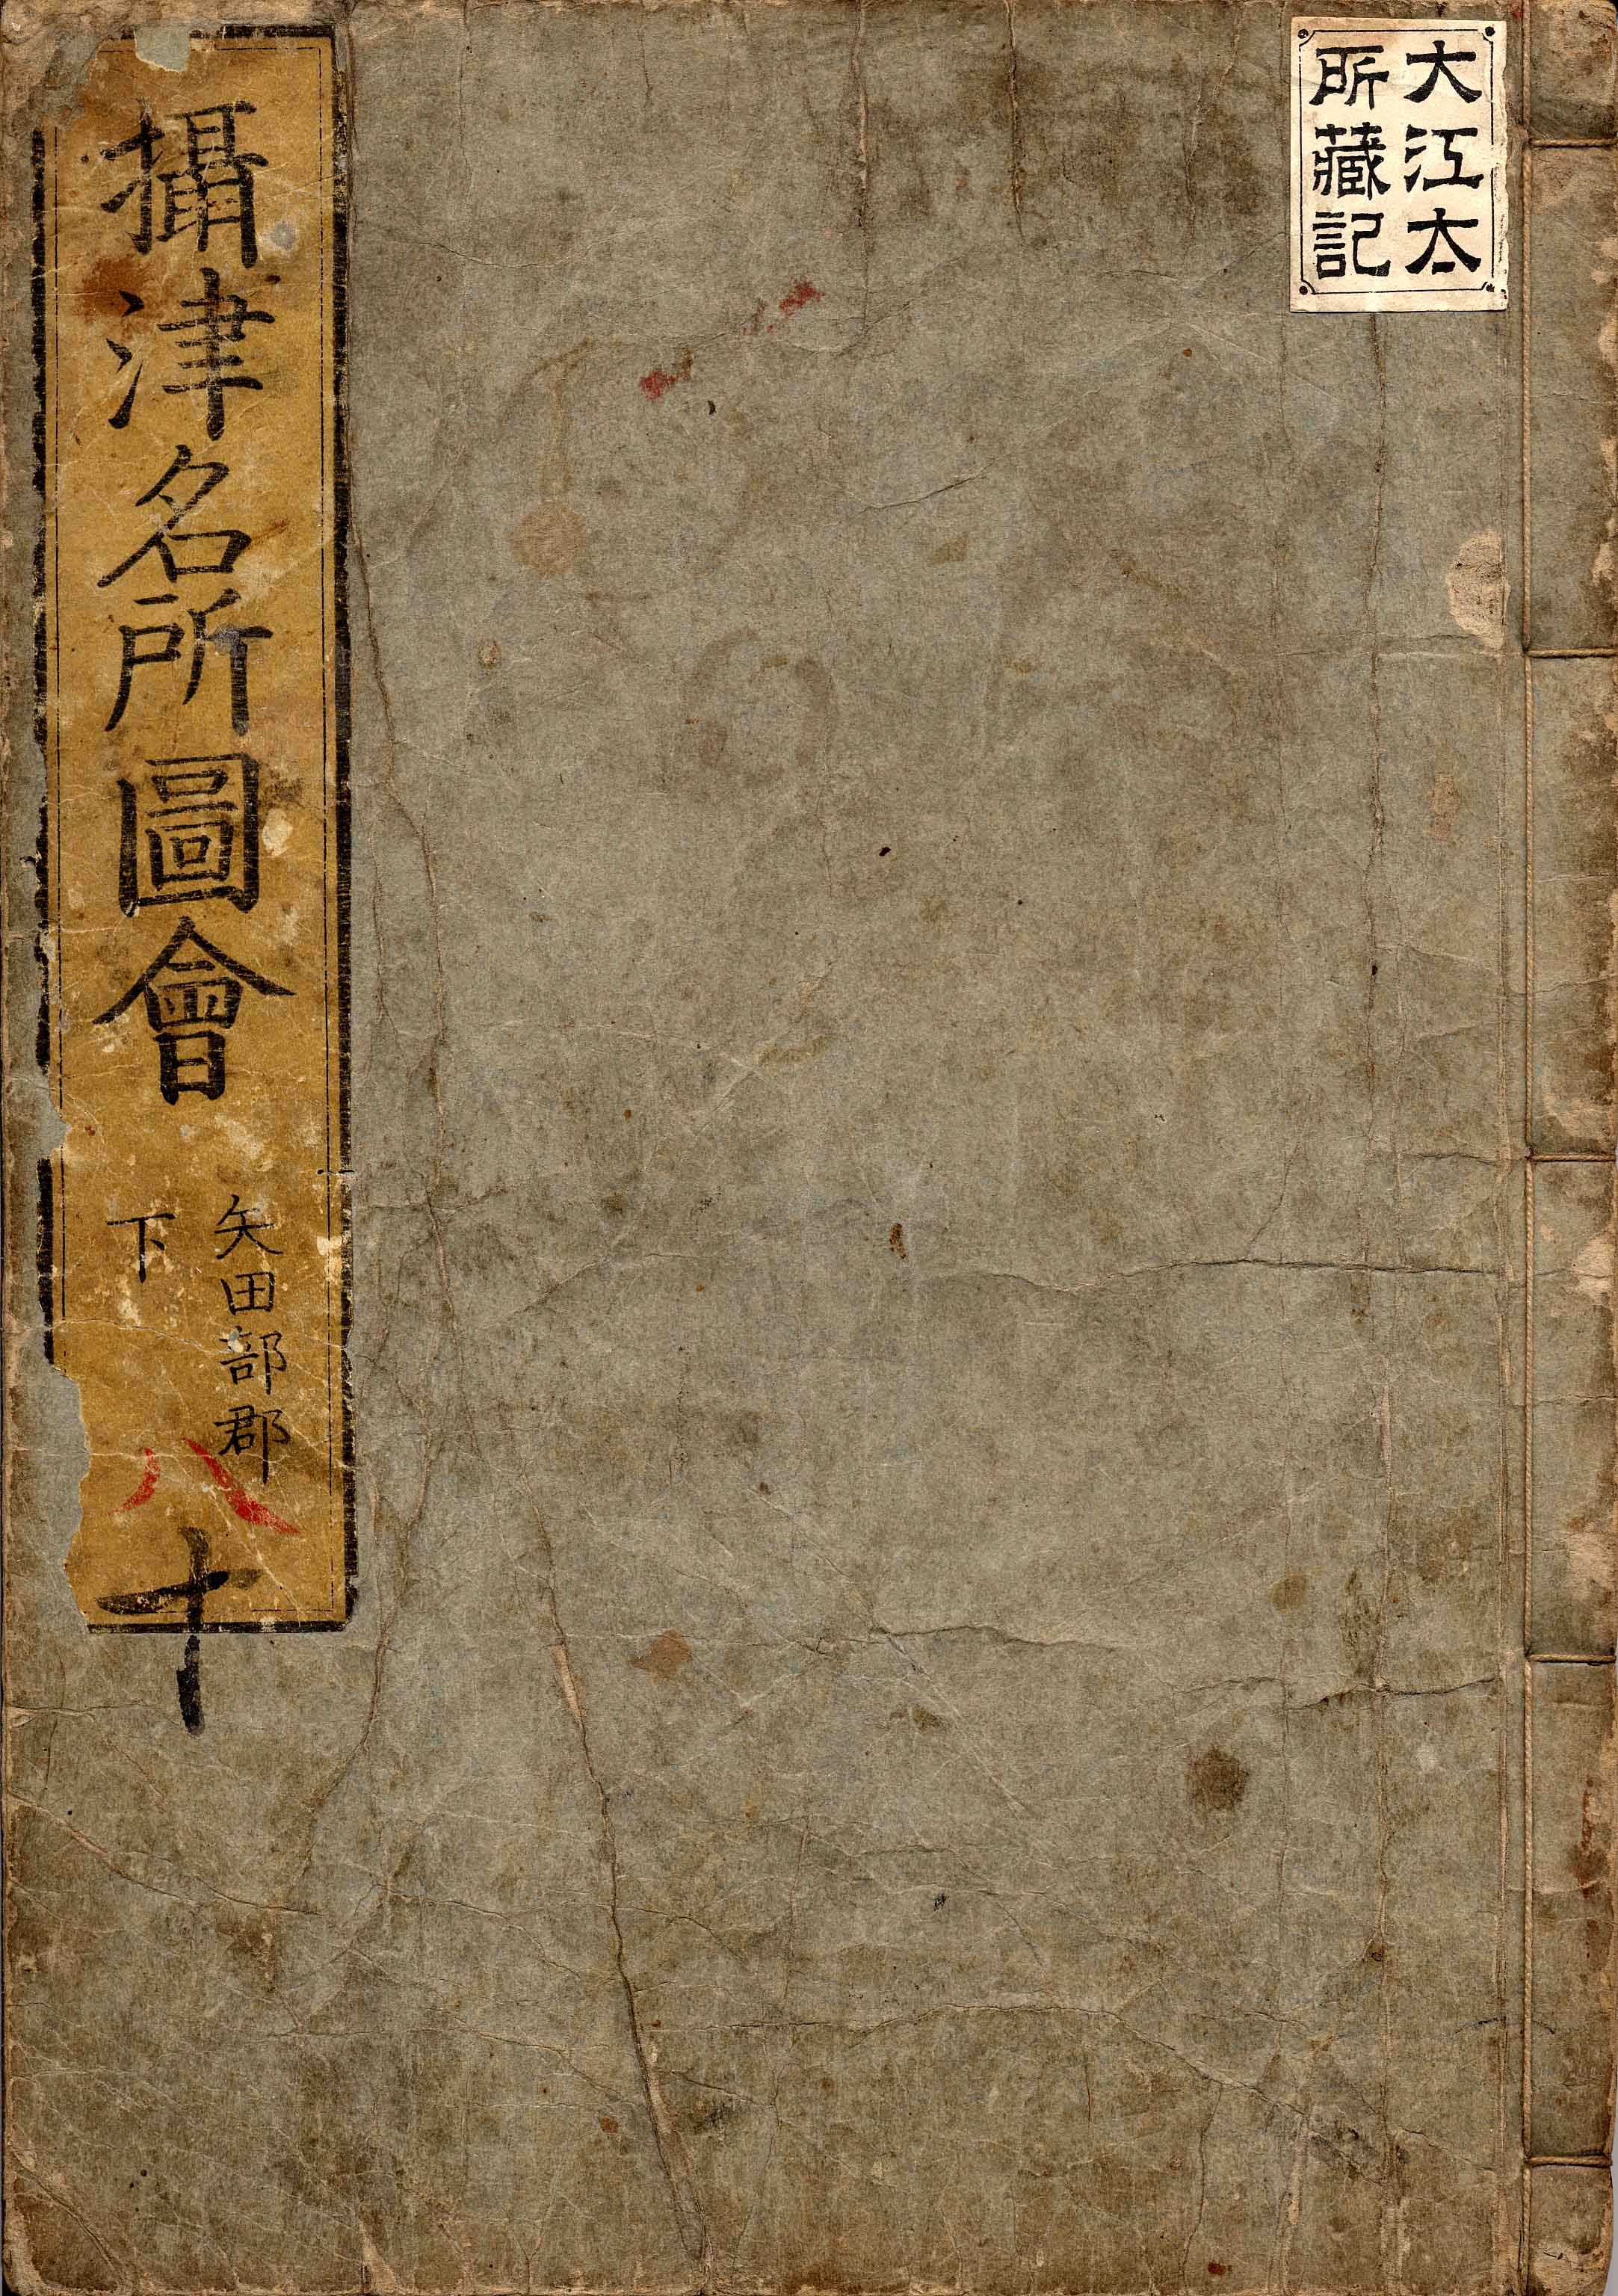 大江太
所藏記
攝津名所圖會
矢田部郡
下
八
十